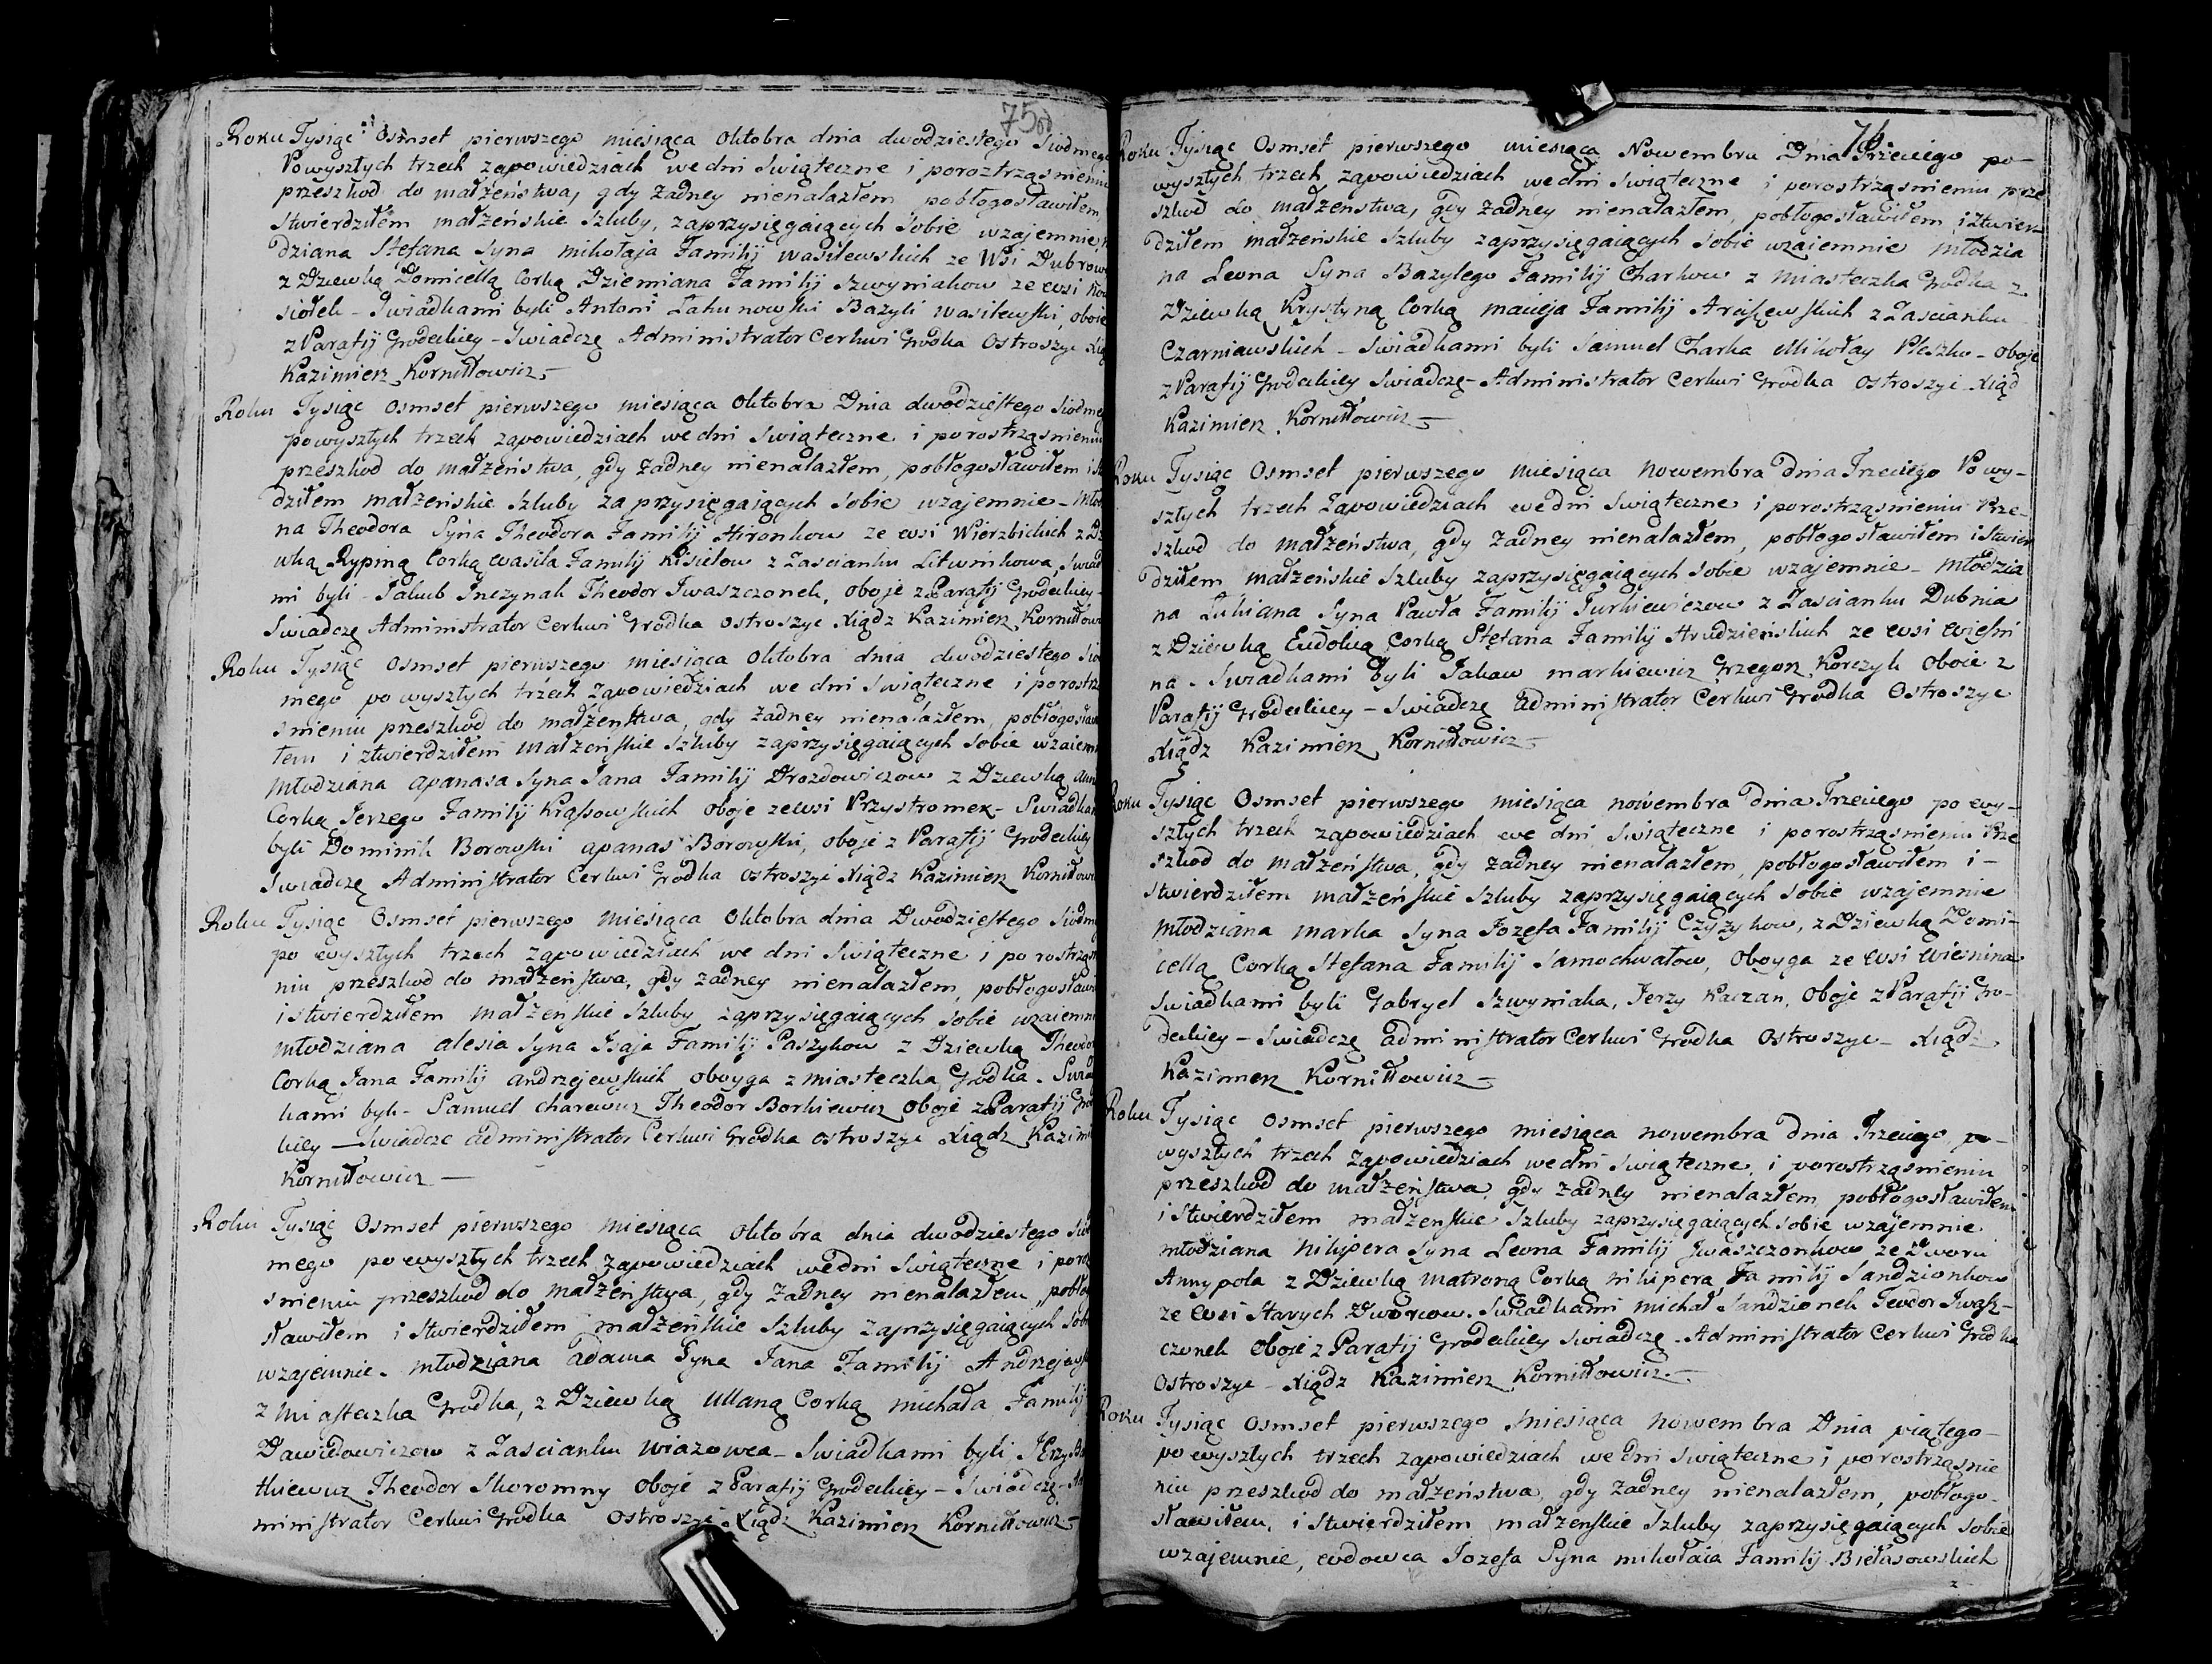 75 od
Roku Tysiąc Osmset pierwszego miesiąca Oktobra dnia dwodziestego Siodmego
Powyszłych trzech zapowiedziach we dni Swiąteczne i poroztrząsnieniu
przeszkod do małżeństwa, gdy Żadney nienalazłem pobłogosławiłem
Stwierdziłem małżeńskie Szluby, zaprzysięgaiących Sobie wzajemnie
dziana Stefana Syna mikołaja Familij wasilewskich ze Wsi Dubrow
z Dziewką Domicellą Corką Dziemiana Familij Szwyniakow ze wsi
siołek - Swiadkami byli Antoni Łakunowski Bazyli wasilewski, oboie
z Parafij Grodeckiey - Swiadczę Administrator Cerkwi Grodka Ostroszyc Xią
Kazimierz Korniłłowicz
Roku Tysiąc Osmset pierwszego miesiąca Oktobra Dnia dwodziestego Siodme
powyszłych trzech zapowiedziach we dni Swiąteczne i porostrząsnieniu
przeszkod do małżeństwa, gdy Żadney nienalazłem, pobłogosławiłem i
dziłem małżeńskie Szluby zaprzysięgaiących Sobie wzajemnie - Mło
na Theodora Syna Theodora Familij Hironkow ze wsi Wierzbickich z D
wką Rypiną Corką wasila Familij Kisielow z Zascianku Litwinkowa, Swiad
mi byli - Jakub Inczynak Theodor Iwaszczonek, oboje z Parafij Grodeckiey -
Swiadczę Administrator Cerkwi Grodka Ostroszyc Xiądz Kazimierz Korniłłow
Roku Tysiąc Osmset pierwszego miesiąca Oktobra dnia dwodziestego Sio
mego powyszłych trzech Zapowiedziach we dni Swiąteczne i porostrz
snieniu przeszkod do małżeństwa, gdy Żadney nienalazłem, pobłogosław
łem i ztwierdziłem małżeńskie Szluby zaprzysięgaiących Sobie wzaiemn
Młodziana apanasa Syna Jana Familij Drozdowiczow z Dziewką Ann
Corką Jerzego Familij Krassowskich oboje ze wsi Przystromek - Swiadkam
byli Dominik Borowski apanas Borowski, oboje z Parafij Grodeckiey
Swiadczę Administrator Cerkwi Grodka Ostroszyc Xiądz Kazimierz Korniłłow
Roku Tysiąc Osmset pierwszego Miesiąca Oktobra dnia Dwodziestego Siodm
po wyszłych trzech zapowiedziach we dni Swiąteczne i porostrząs
niu przeszkod do małżeństwa, gdy Żadney nienalazłem, pobłogosławi
i stwierdziłem Małżenskie Szluby zaprzysięgaiących Sobie wzaiemn
młodziana alesia Syna Isaja Familij Paszykow z Dziewką Theodo
Corką Jana Familij andrzejewskich oboyga z miasteczka Grodka. Swiad
kami byli - Samuel charewicz Theodor Borkiewicz oboje z Parafij Grod
kiey - Swiadcze administrator Cerkwi Grodka ostroszyc Xiądz Kazimi
Korniłłowicz -
Roku Tysiąc Osmset pierwszego miesiąca oktobra dnia dwodziestego Sio
mego po wyszłych trzech zapowiedziach we dni Swiąteczne i poro
snieniu przeszkod do małżeństwa, gdy Żadney nienalazłem, pobło
sławiłem i Stwierdziłem małżeńskie Szluby Zaprzysięgaiących Sob
wzajemnie. młodziana adama Syna Jana Familij Andrzejews
z miasteczka Grodka, z Dziewką Ullaną Corką michała Familij
Dawidowiczow z Zascianku wiazowca - Swiadkami byli Jerzy
tkiewicz Theodor Skoromny oboje z Parafij Grodeckiey - Swiadczę - Ad
ministrator Cerkwi Grodka Ostroszyc Xiądz Kazimierz Korniłłowicz -
76
Roku Tysiąc Osmset pierwszego miesiąca Nowembra Dnia Trzeciego po-
wyszłych trzech zapowiedziach we dni Swiąteczne i porostrząsnieniu prze
szkod do małżenstwa, gdy Żadney nienalazłem, pobłogosławiłem i Ztwier-
dziłem małżeńskie Szluby zaprzysięgaiących Sobie wzaiemnie młodzia
na Leona Syna Bazylego Familij Charkow z Miasteczka Grodka z
Dziewką Krystyną Corką macieja Familij Arciszewskich z Zascianku
Czarniawskich - Swiadkami byli Samuel Charka Mikołay Pleszko - oboje
z Parafij Grodeckiey Swiadczę - Administrator Cerkwi Grodka Ostroszyc Xiąd
Kazimierz Korniłłowicz -
Roku Tysiąc Osmset pierwszego miesiąca nowembra dnia Trzeciego Po wy-
szłych trzech Zapowiedziach we dni Swiąteczne i porostrząsnieniu Prze-
szkod do małżeństwa, gdy Żadney nienalazłem, pobłogosławiłem i Stwier
dziłem małżeńskie Szluby zaprzysięgaiących Sobie wzajemnie - Młodzia
na Łukiana Syna Pawła Familij Jurkiewiczow z Zascianku Dubnia
z Dziewką Eudoką Corką Stefana Familij Hrudzieńskich ze wsi wiesni
na - Swiadkami byli Jakow markiewicz Grzegorz Korczyk oboie z
Parafij Grodeckiey - Swiadczę administrator Cerkwi Grodka Ostroszyc
Xiądz Kazimierz Korniłłowicz -
Roku Tysiąc Osmset pierwszego miesiąca nowembra dnia Trzeciego po wy-
szłych trzech zapowiedziach we dni Swiąteczne i porostrząsnieniu Prze
szkod do małżeństwa, gdy Żadney nienalazłem, pobłogosławiłem i -
Stwierdziłem małżeńskie Szluby zaprzysięgaiących Sobie wzajemnie
młodziana marka Syna Jozefa Familij Czyżykow, z Dziewką Domi-
cellą Corką Stefana Familij Samochwałow, oboyga ze wsi wiesnina
Swiadkami byli Gabryel Szwyniaka, Jerzy Kaczan, oboje z Parafij Gro-
deckiey - Swiadczę administrator Cerkwi Grodka Ostroszyc - Xiądz
Kazimierz Korniłłowicz -
Roku Tysiąc Osmset pierwszego miesiąca nowembra dnia Trzeciego po-
wyszłych trzech zapowiedziach we dni Swiąteczne, i porostrząsnieniu
przeszkod do małżeństwa gdy Żadney nienalazłem pobłogosławiłem
i Stwierdziłem małżenskie Szluby zaprzysięgaiących Sobie wzajemnie
młodziana nikipera Syna Leona Familij Iwaszczonkow ze Dworu
Annypola z Dziewką Matroną Corką nikipera Familij Sandzionkow
ze wsi Starych Dworcow. Swiadkami michał Sandzionek Teodor Iwasz-
czonek oboje z Parafij Grodeckiey Swiadczę - Administrator Cerkwi Grodka
Ostroszyc - Xiądz Kazimierz Korniłłowicz -
Roku Tysiąc Osmset pierwszego Miesiąca Nowembra Dnia piątego -
po wyszłych trzech zapowiedziach we dni Swiąteczne i porostrząsnie
niu przeszkod do małżeństwa gdy Żadney nienalazłem, pobłogo-
sławiłem, i Stwierdziłem małżenskie Szluby zaprzysięgaiących Sobie
wzajemnie, wdowca Jozefa Syna mikołaia Familij Biełasowskich
z